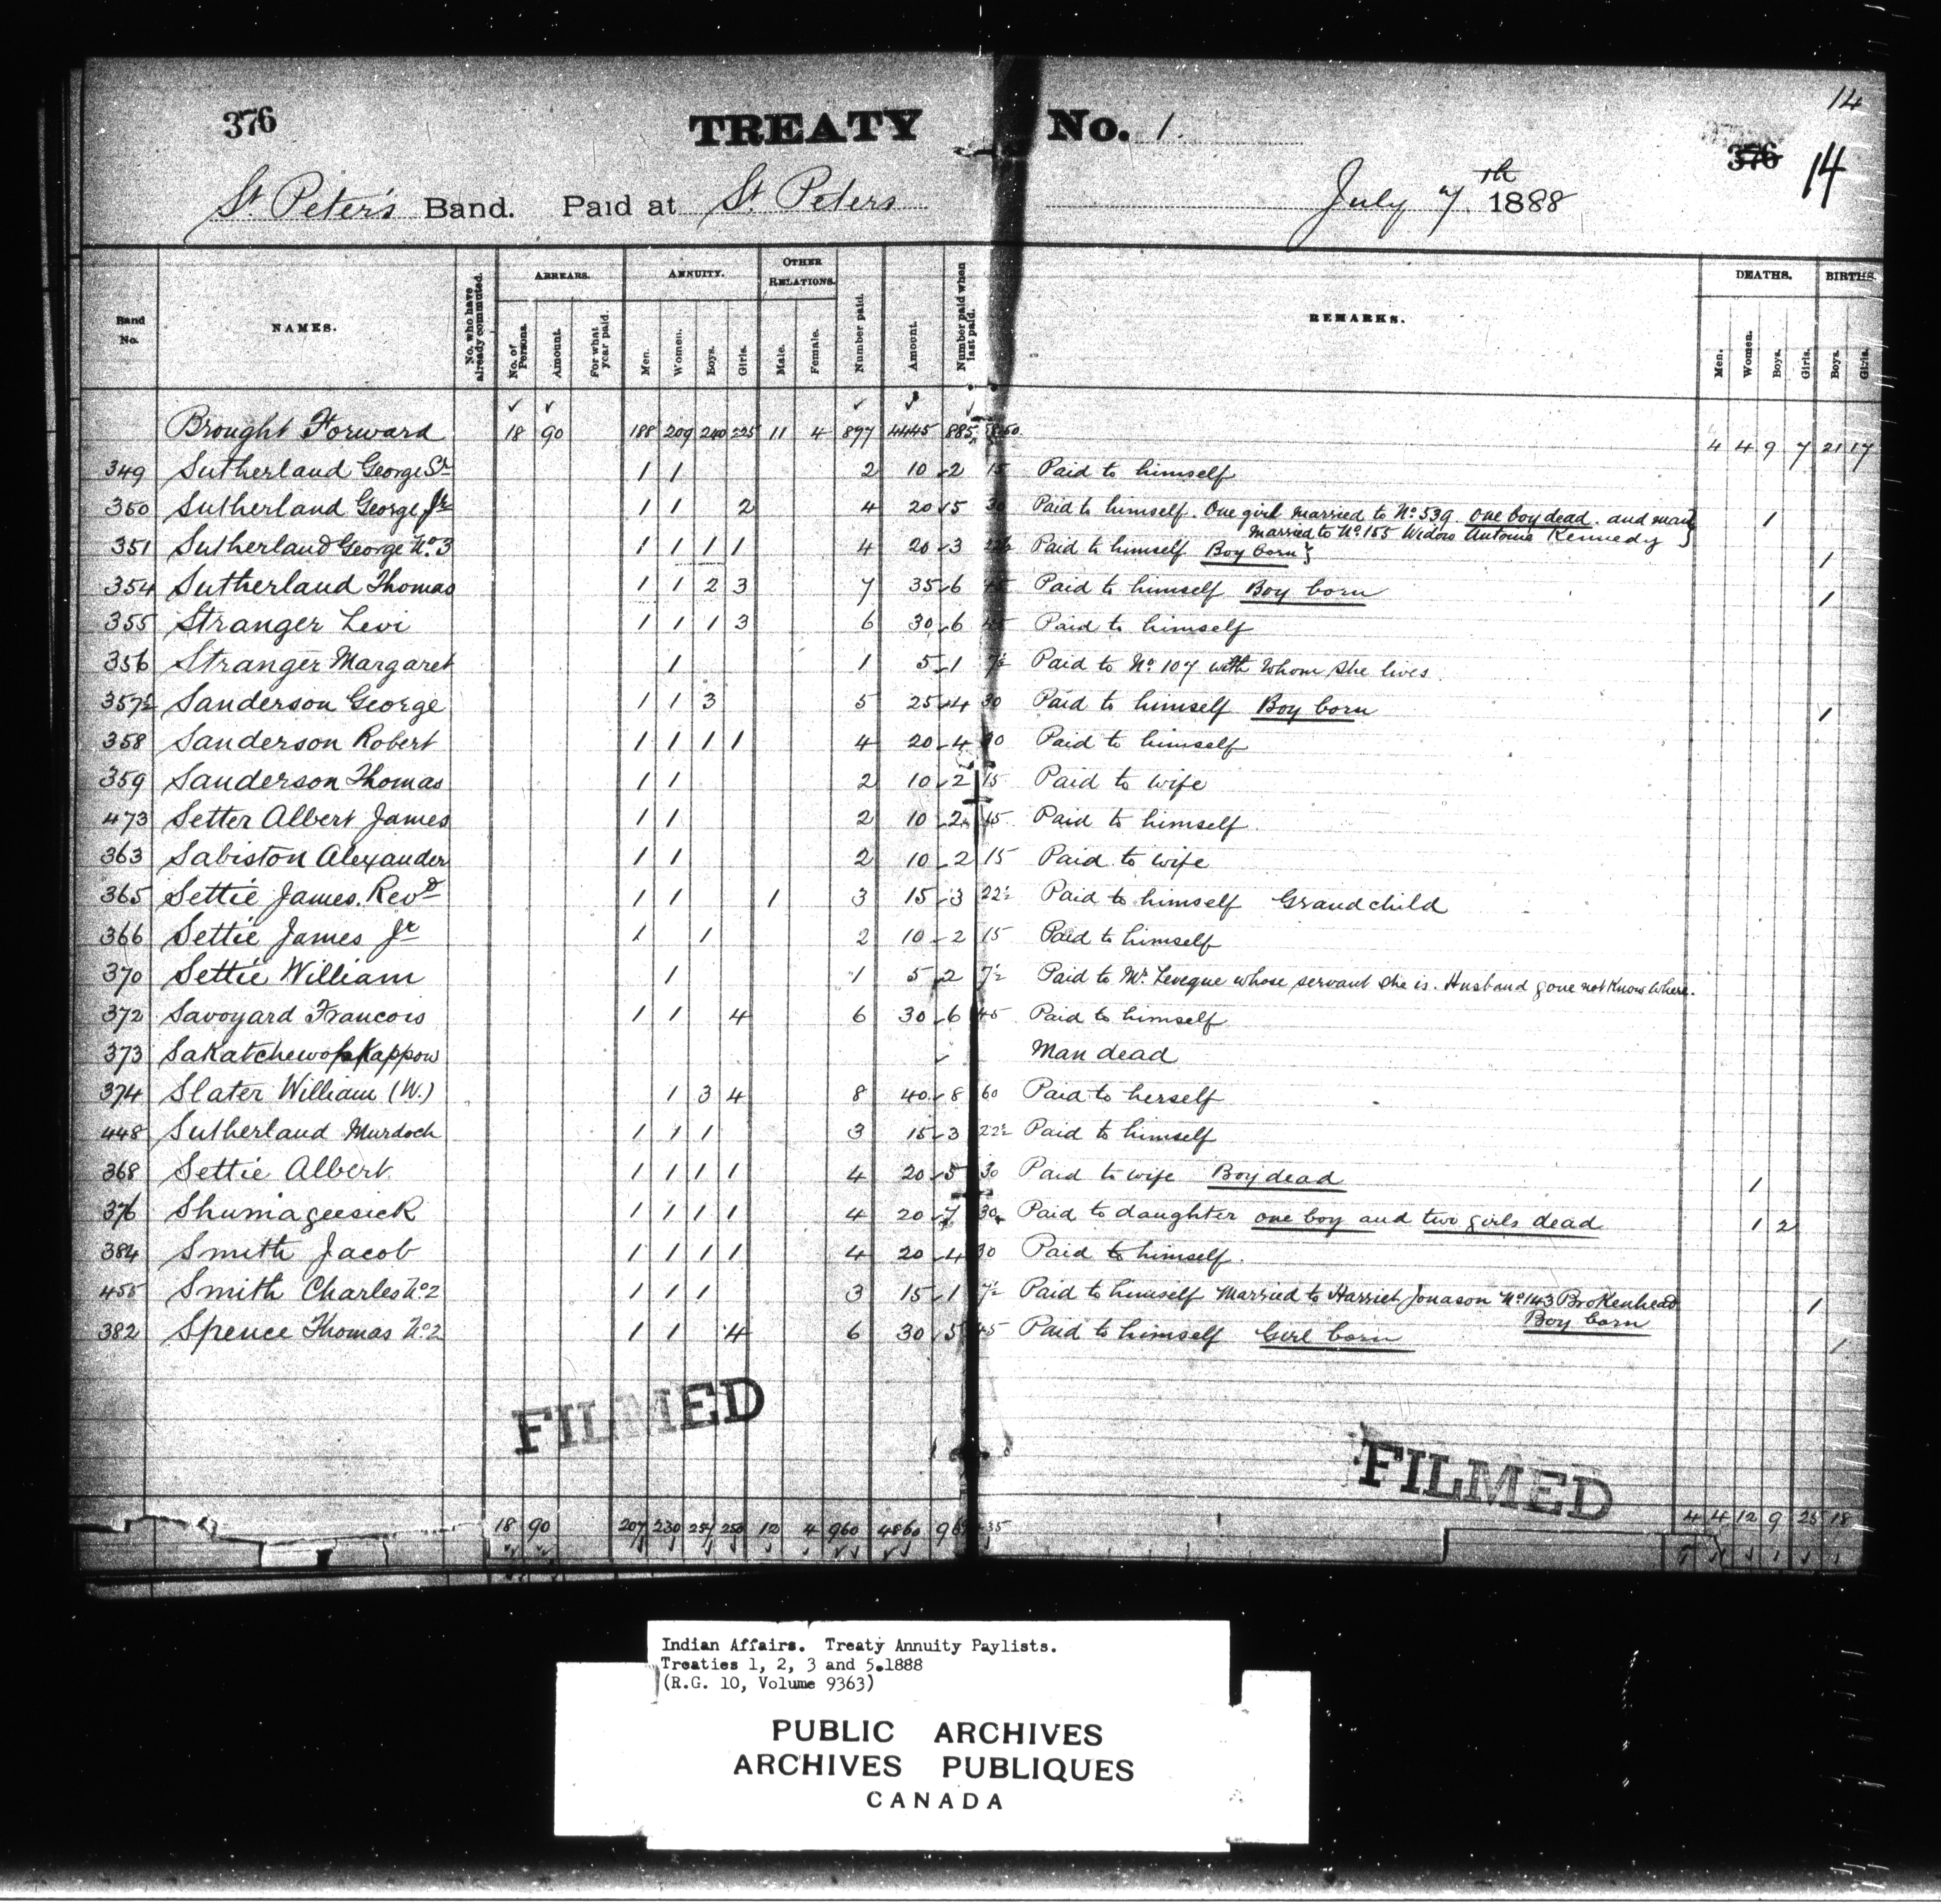 14
376 TREATY No. 1. 376 14
St. Peter's Band. Paid at St. Peters July 7th 1888
Band No. NAMES. No. who have already commuted. ARREARS. No. of Persons. Amount. For what year paid. ANNUITY. Men. Women. Boys. Girls. OTHER RELATIONS. Male. Female. Number paid. Amount. Number paid when last paid. REMARKS. DEATHS. Men. Women. Boys. Girls. BIRTHS. Boys. Girls.
Brought Forward 18 90 188 209 240 225 11 4 897 4445 885 4 4 9 7 21 17
349 Sutherland George Sr 1 1 2 10 2 15 Paid to himself
350 Sutherland George Jr 1 1 2 4 20 5 30 Paid to himself. One girl married to No. 539. one boy dead. and man 1
Married to No. 155 Widow Antoine Kennedy
351 Sutherland George No. 3 1 1 1 1 4 20 3 Paid to himself Boy born 1
354 Sutherland Thomas 1 1 2 3 7 35 6 45 Paid to himself Boy born 1
355 Stranger Levi 1 1 1 3 6 30 6 45 Paid to himself
356 Stranger Margaret 1 1 5 1 7½ Paid to No. 107 with whom she lives.
357½ Sanderson George 1 1 3 5 25 4 30 Paid to himself Boy born 1
358 Sanderson Robert 1 1 1 1 4 20 4 30 Paid to himself
359 Sanderson Thomas 1 1 2 10 2 15 Paid to wife
473 Setter Albert James 1 1 2 10 2 15 Paid to himself
363 Sabiston Alexander 1 1 2 10 2 15 Paid to wife
365 Settie James. Revd 1 1 1 3 15 3 22½ Paid to himself Grandchild
366 Settie James Jr 1 1 2 10 2 15 Paid to himself
370 Settie William 1 1 5 2 7½ Paid to Mr. Leveque whose servant she is. Husband gone not know where.
372 Savoyard Francois 1 1 4 6 30 6 45 Paid to himself
373 Man dead
374 Slater William (W.) 1 3 4 8 40 8 60 Paid to herself
448 Sutherland Murdoch 1 1 1 3 15 3 22½ Paid to himself
368 Settie Albert. 1 1 1 1 4 20 5 30 Paid to wife Boy dead 1
376 Shumageesick 1 1 1 1 4 20 7 30 Paid to daughter one boy and two girls dead 1 2
384 Smith Jacob 1 1 1 1 4 20 4 30 Paid to himself.
455 Smith Charles No. 2 1 1 1 3 15 1 7½ Paid to himself Married to Harriet Jonason No. 143 Brokenhead 1
Boy born
382 Spence Thomas No. 2 1 1 4 6 30 5 45 Paid to himself Girl born 1
FILMED
FILMED
18 90 207 230 257 250 12 4 960 4860 4 4 12 9 25 18
Indian Affairs. Treaty Annuity Paylists.
Treaties 1, 2, 3 and 5.1888
(R.G. 10, Volume 9363)
PUBLIC ARCHIVES
ARCHIVES PUBLIQUES
CANADA